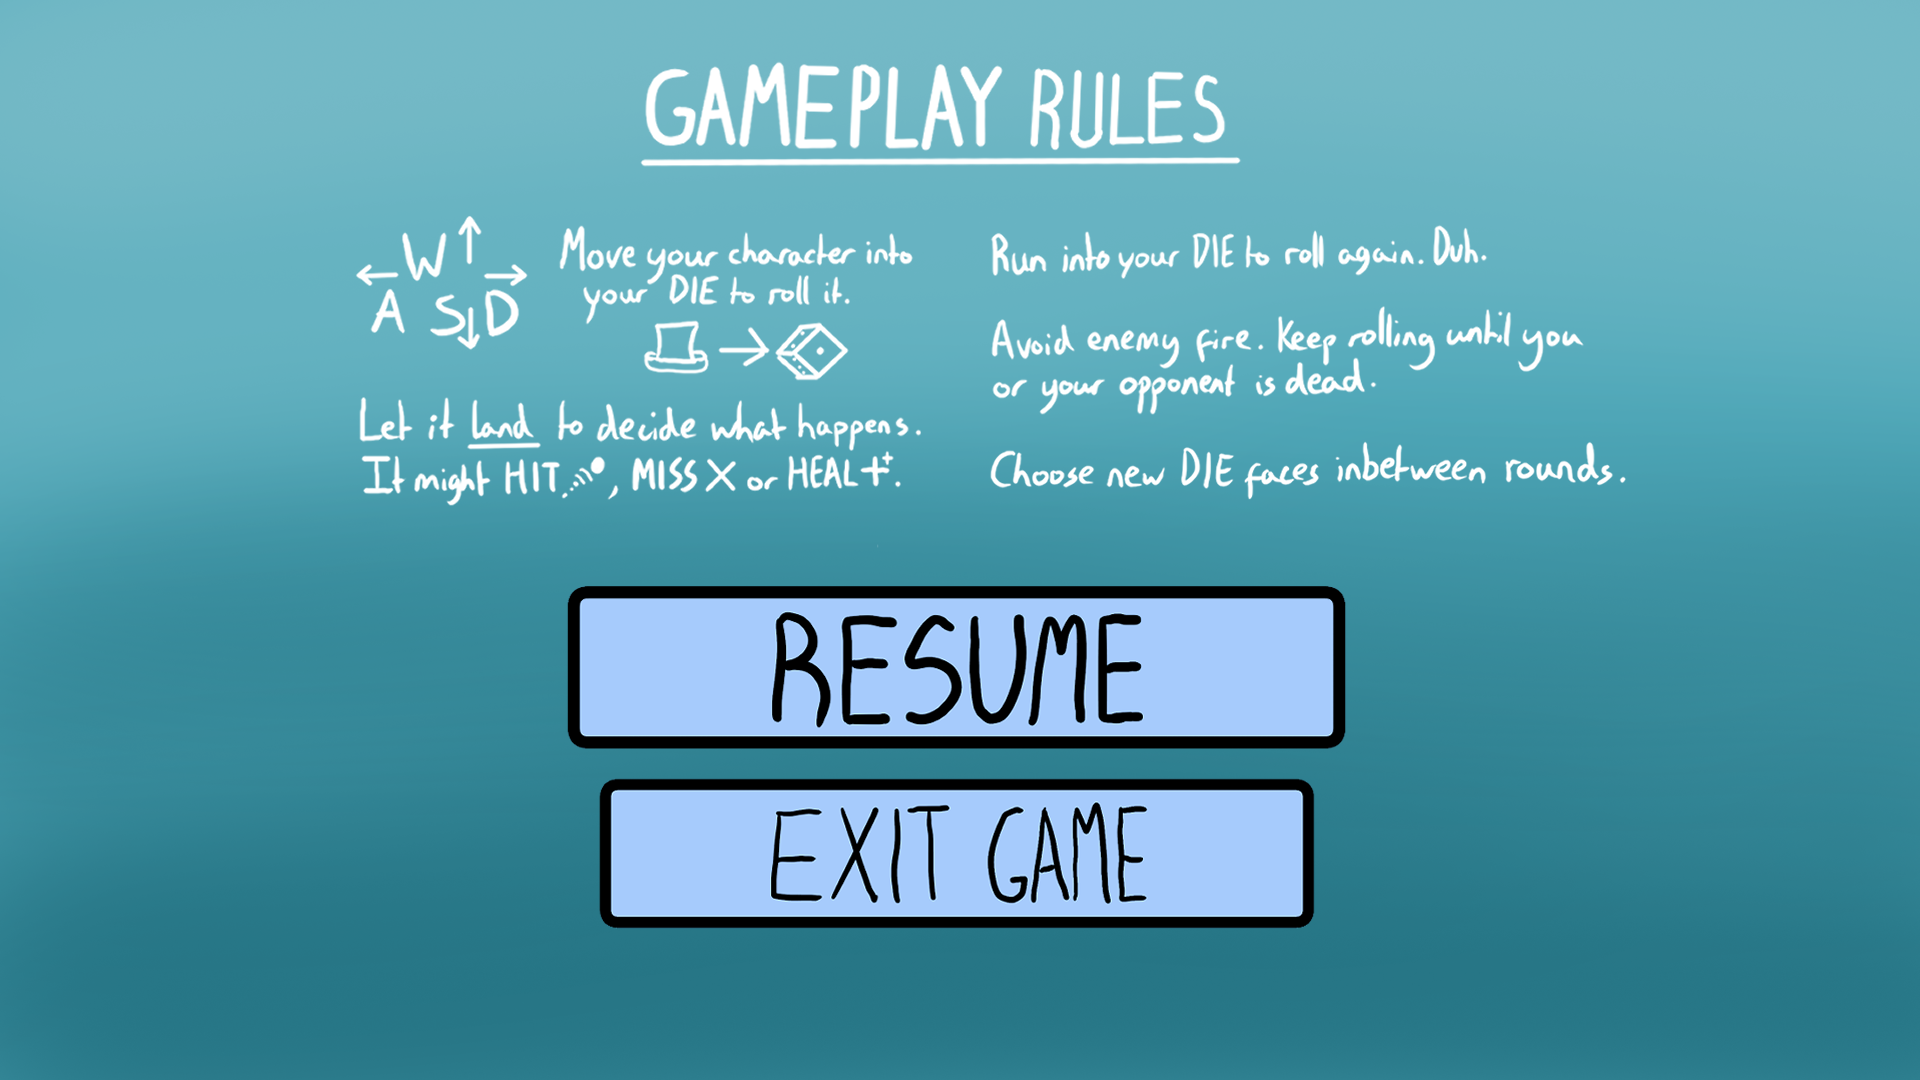 GAMEPLAY RULES
W
A S D
Move your character into
your DIE to roll it.
Let it land to decide what happens.
It might HIT, MISS X or HEAL.
Run into your DIE to roll again. Duh.
Avoid enemy fire. Keep rolling until you
or your opponent is dead.
Choose new DIE faces inbetween rounds.
RESUME
EXIT GAME